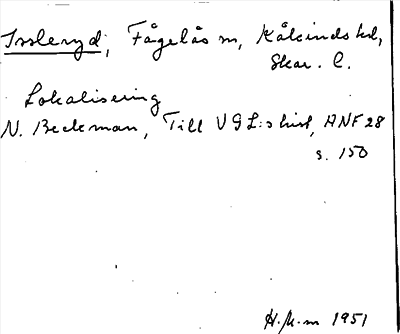 Issleryd, Fågelås sn, Kåkinds hd,
Skar. l.
Lokalisering
N. Beckman, Till VGL:s hist, ANF 28
s. 150
H. Jk-m 1951